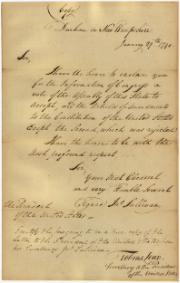 Copy
Durham in New Hampshire
January 29th 1790
Sir,
I have the honor to enclose you
for the Information of Congress a
vote of the assembly of this State to
accept all the articles of amendments
to the Constitution of the United States
except the second which was rejected
I have the honor to be with the
most profound respect
Sir,
Your most Obedient
and very Humble Servant
Signed Jno Sullivan
The President
of the United States
the foregoing to be a true copy of the
letter to the President of the United States from
his Excellency Jno Sullivan
Tobias Lear
Secretary to the President
of the United States